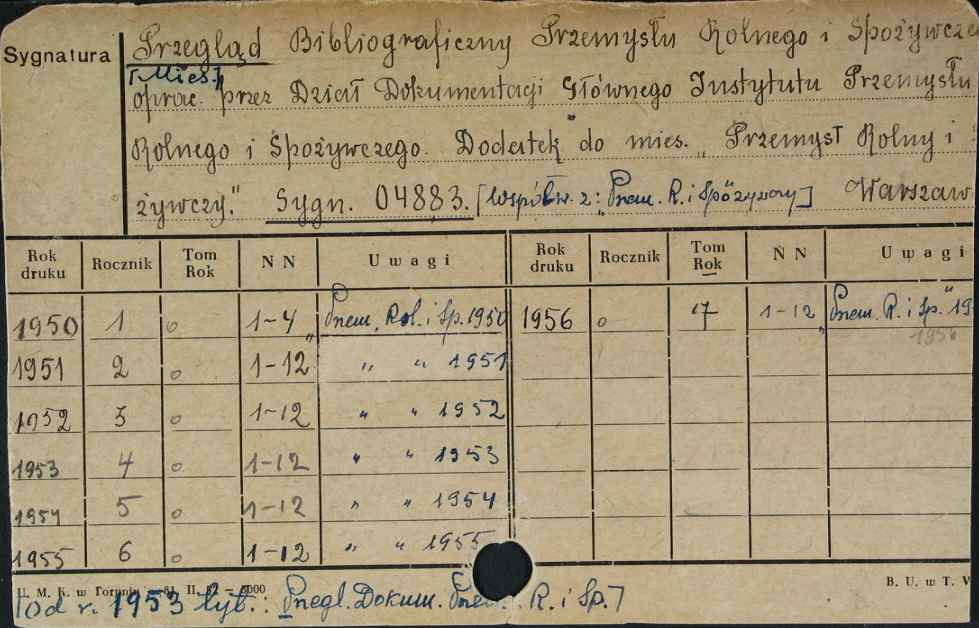 Sygnatura Przegląd Bibliograficzny Przemysłu Rolnego i Spożywcze
[Mies.]
oprac. przez Dział Dokumentacji Głównego Instytutu Przemysłu
Rolnego i Spożywczego. Dodatek do mies. "Przemysł Rolny i
żywczy." Sygn. 04883. [Współw. z: "Przem. R. i Spożywczy"] Warszaw
Rok druku Rocznik Tom Rok N N Uwagi Rok druku Rocznik Tom Rok N N Uwagi
1950 1 o 1-4 "Przem. Rol. i Sp. 1950 1956 o 7 1-12 "Przem. R. i Sp." 19
1956
1951 2 o 1-12 " " 1951
1952 3 o 1-12 " " 1952
1953 4 o 1-12 " " 1953
1954 5 o 1-12 " " 1954
1955 6 o 1-12 " " 1955
U. M. K. w Toruniu 5000 B. U. w T. V
[Od r. 1953 tyt.: Przegl. Dokum. Przem. R. i Sp.]